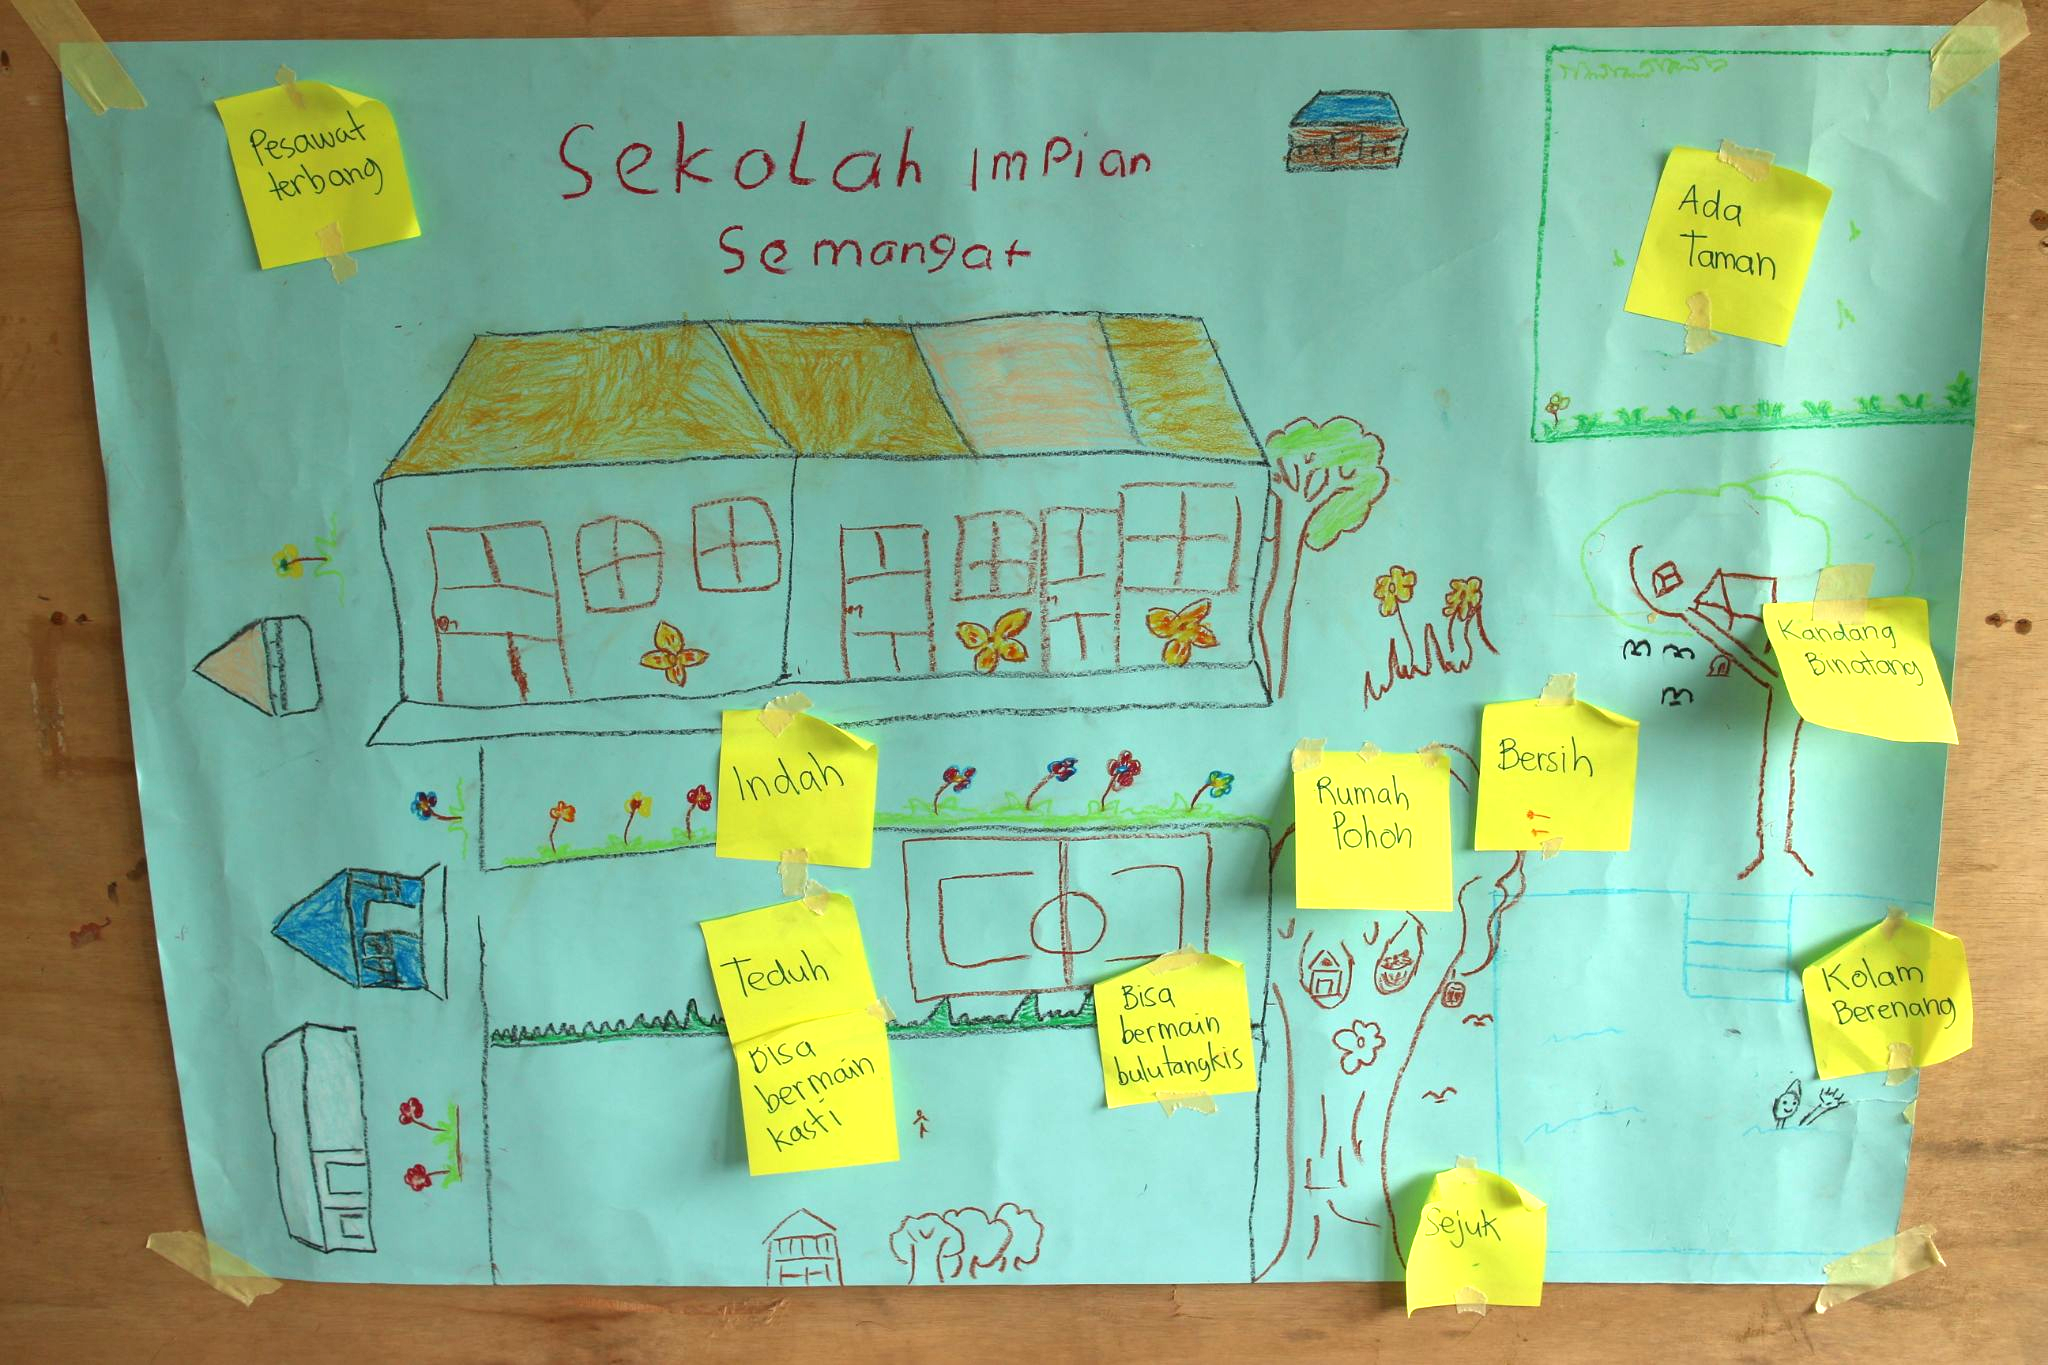 Pesawat
terbang
Sekolah Impian
Semangat
Ada
Taman
Kandang
Binatang
Indah
Rumah
Pohon
Bersih
Teduh
Bisa
bermain
kasti
Bisa
bermain
bulutangkis
Kolam
Berenang
Sejuk